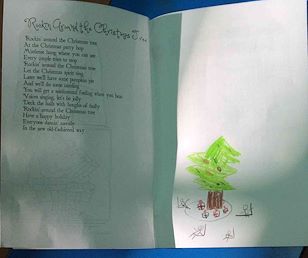 Rockin' Around the Christmas Tree
Rockin' around the Christmas tree
At the Christmas party hop
Mistletoe hung where you can see
Every couple tries to stop
Rockin' around the Christmas tree
Let the Christmas spirit ring
Later we'll have some pumpkin pie
And we'll do some caroling
You will get a sentimental feeling when you hear
Voices singing, let's be jolly
Deck the halls with boughs of holly
Rockin' around the Christmas tree
Have a happy holiday
Everyone dancin' merrily
In the new old-fashioned way